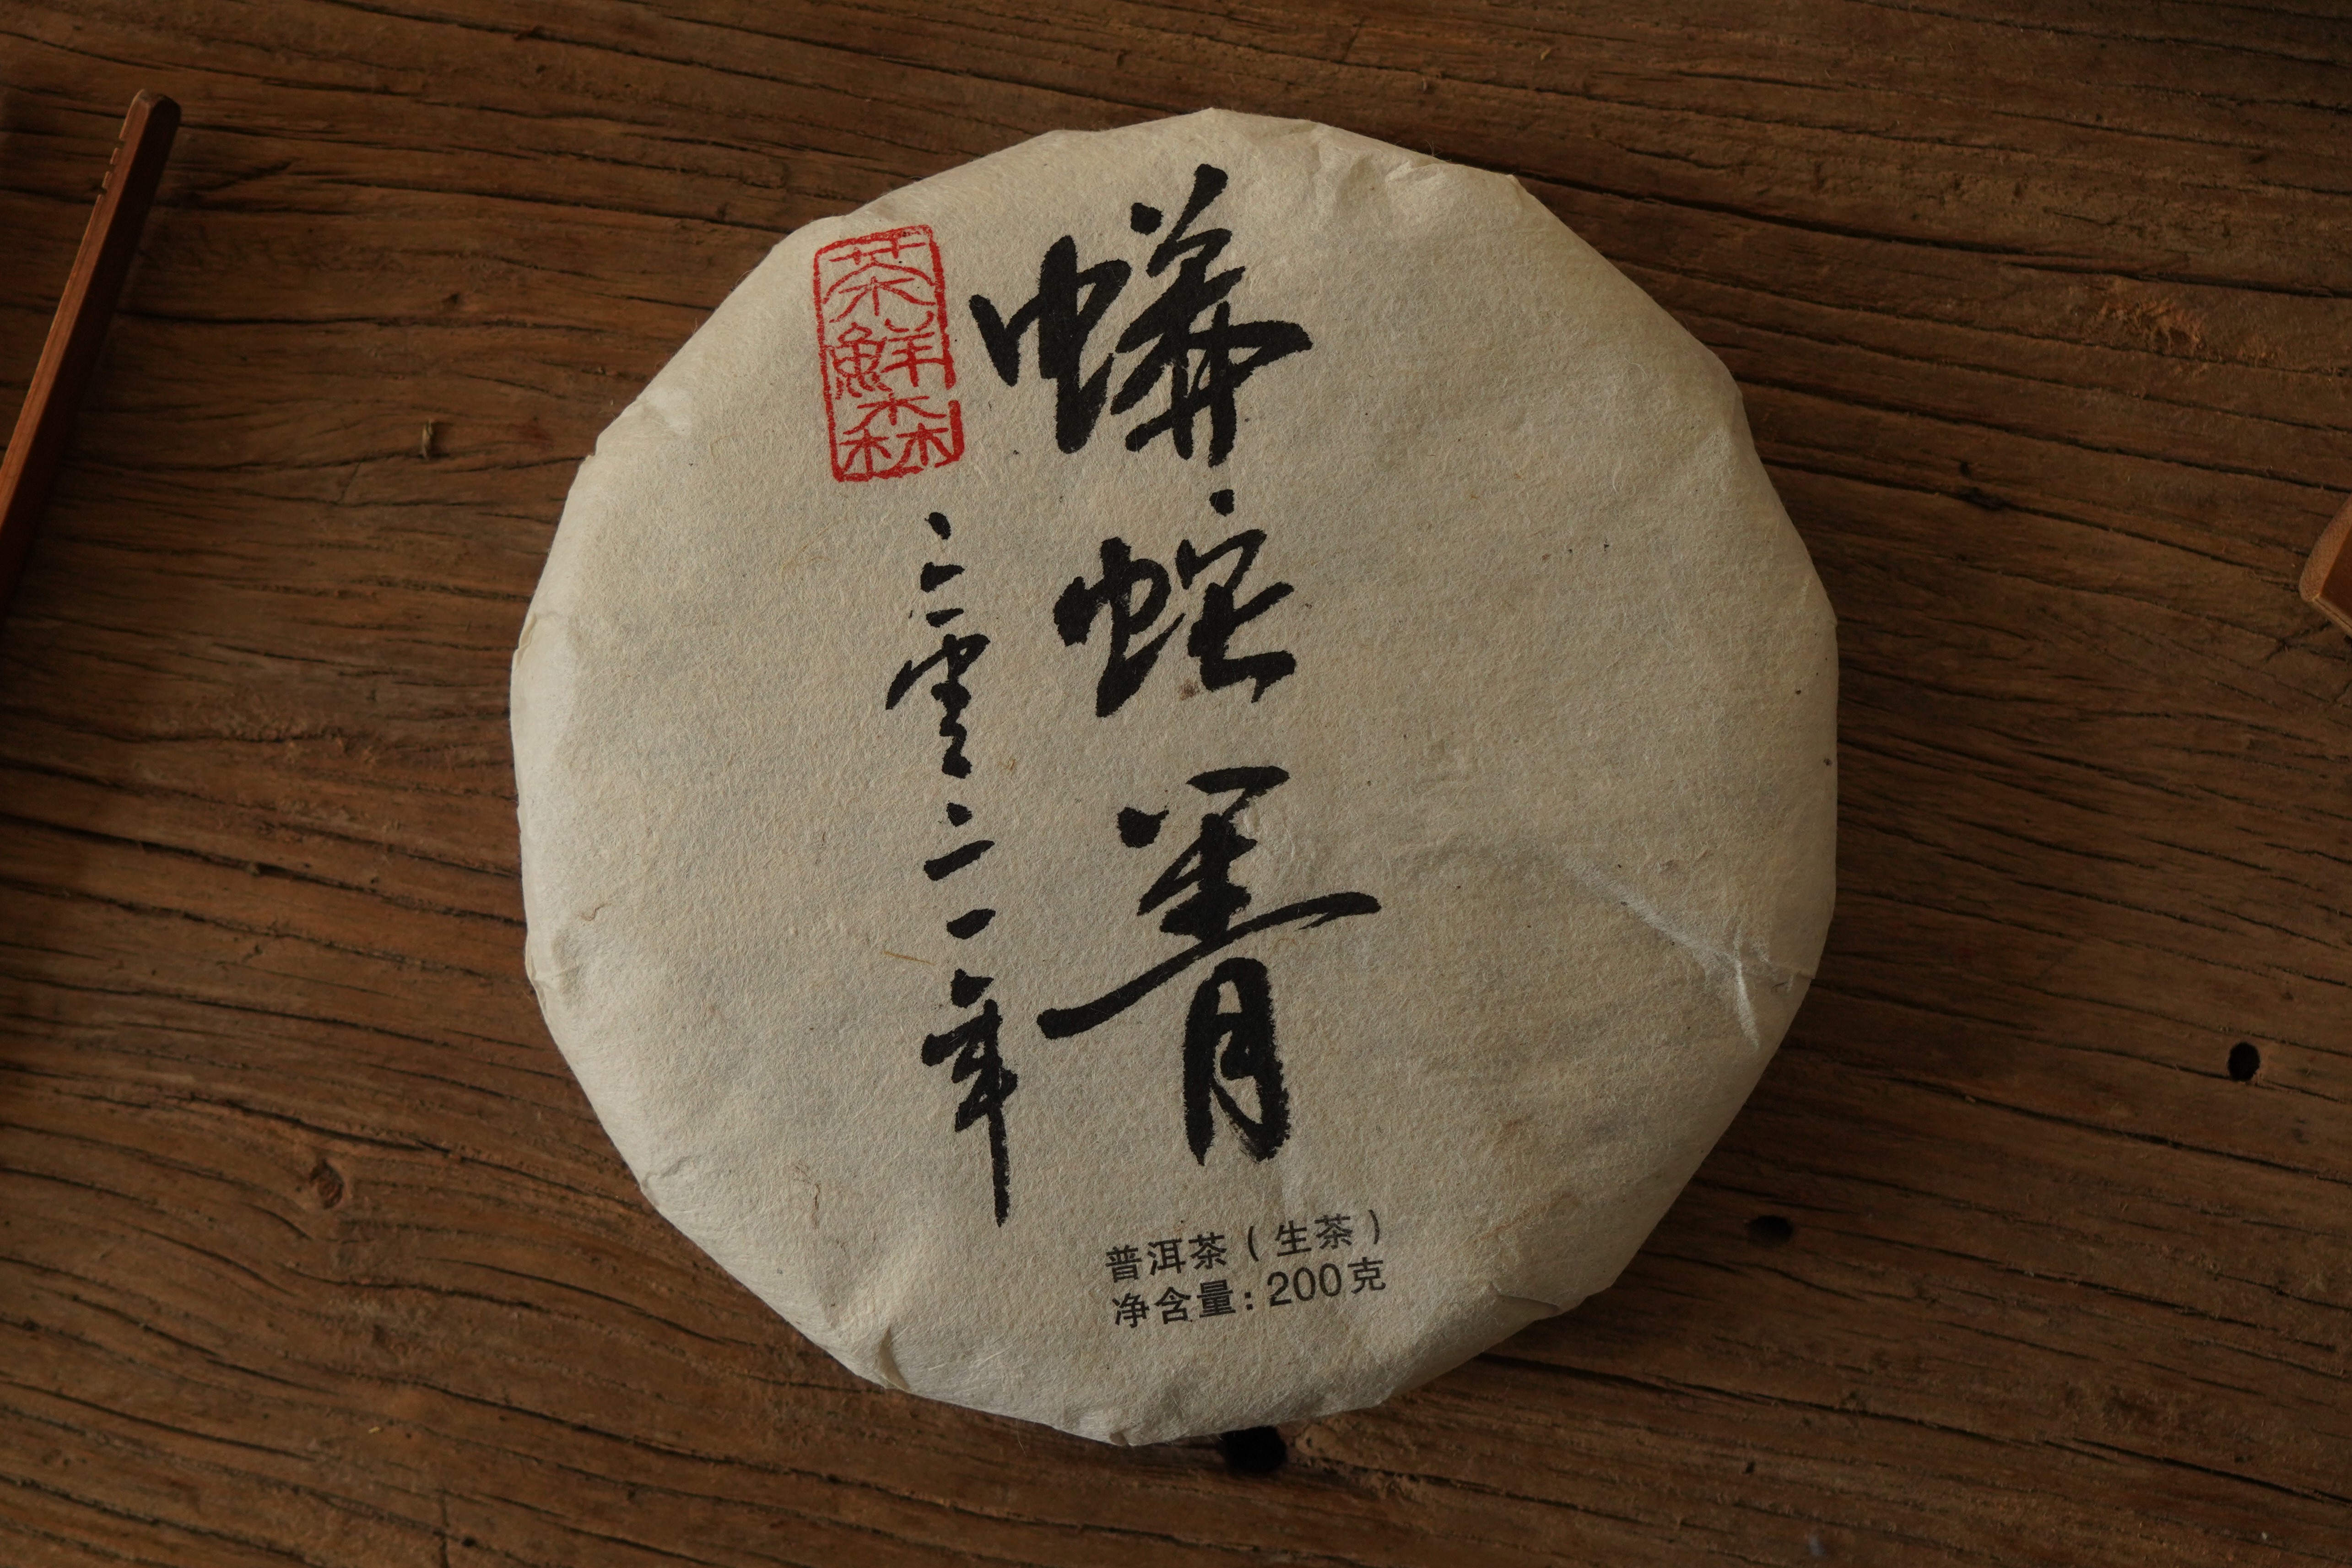 蟒蛇箐
茶鮮森
二零二一年
普洱茶(生茶)
净含量:200克